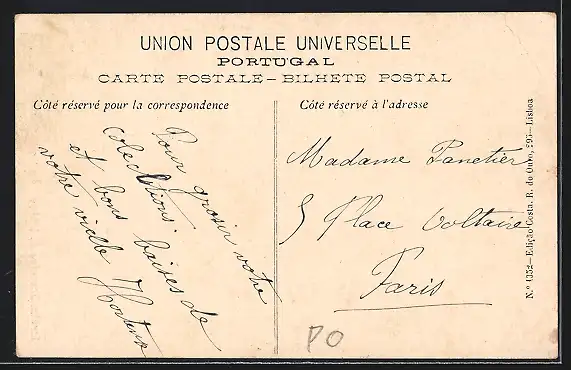 UNION POSTALE UNIVERSELLE
PORTUGAL
CARTE POSTALE — BILHETE POSTAL
Côté réservé pour la correspondence
Côté réservé à l'adresse
Pour grosir votre
colecltions
et bons baises de
votre vielle Hortense
Madame Panetier
5 Place Voltaire
Paris
PO
N.º 1352 — Edição Costa, R. do Ouro, 295 — Lisboa